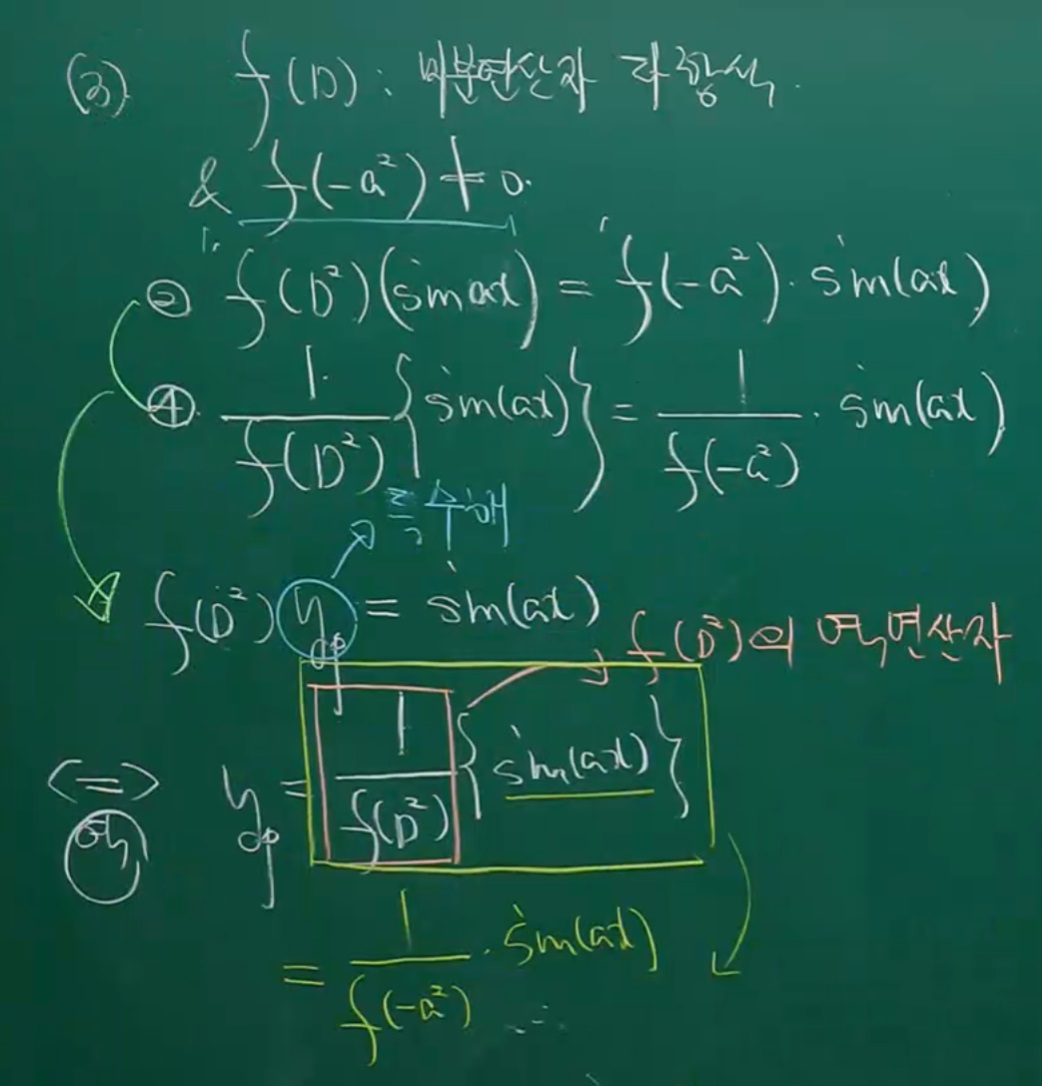 (3) f(D) : 미분연산자 다항식.
& f(-a²) ≠ 0.
㊁ f(D²)(sin ax) = f(-a²)·sin(ax)
④. 1/f(D²) {sin(ax)} = 1/f(-a²) · sin(ax)
특수해
f(D²) y_p = sin(ax)
f(D²)의 역연산자
<=> y_p = 1/f(D²) {sin(ax)}
역
= 1/f(-a²) · sin(ax)